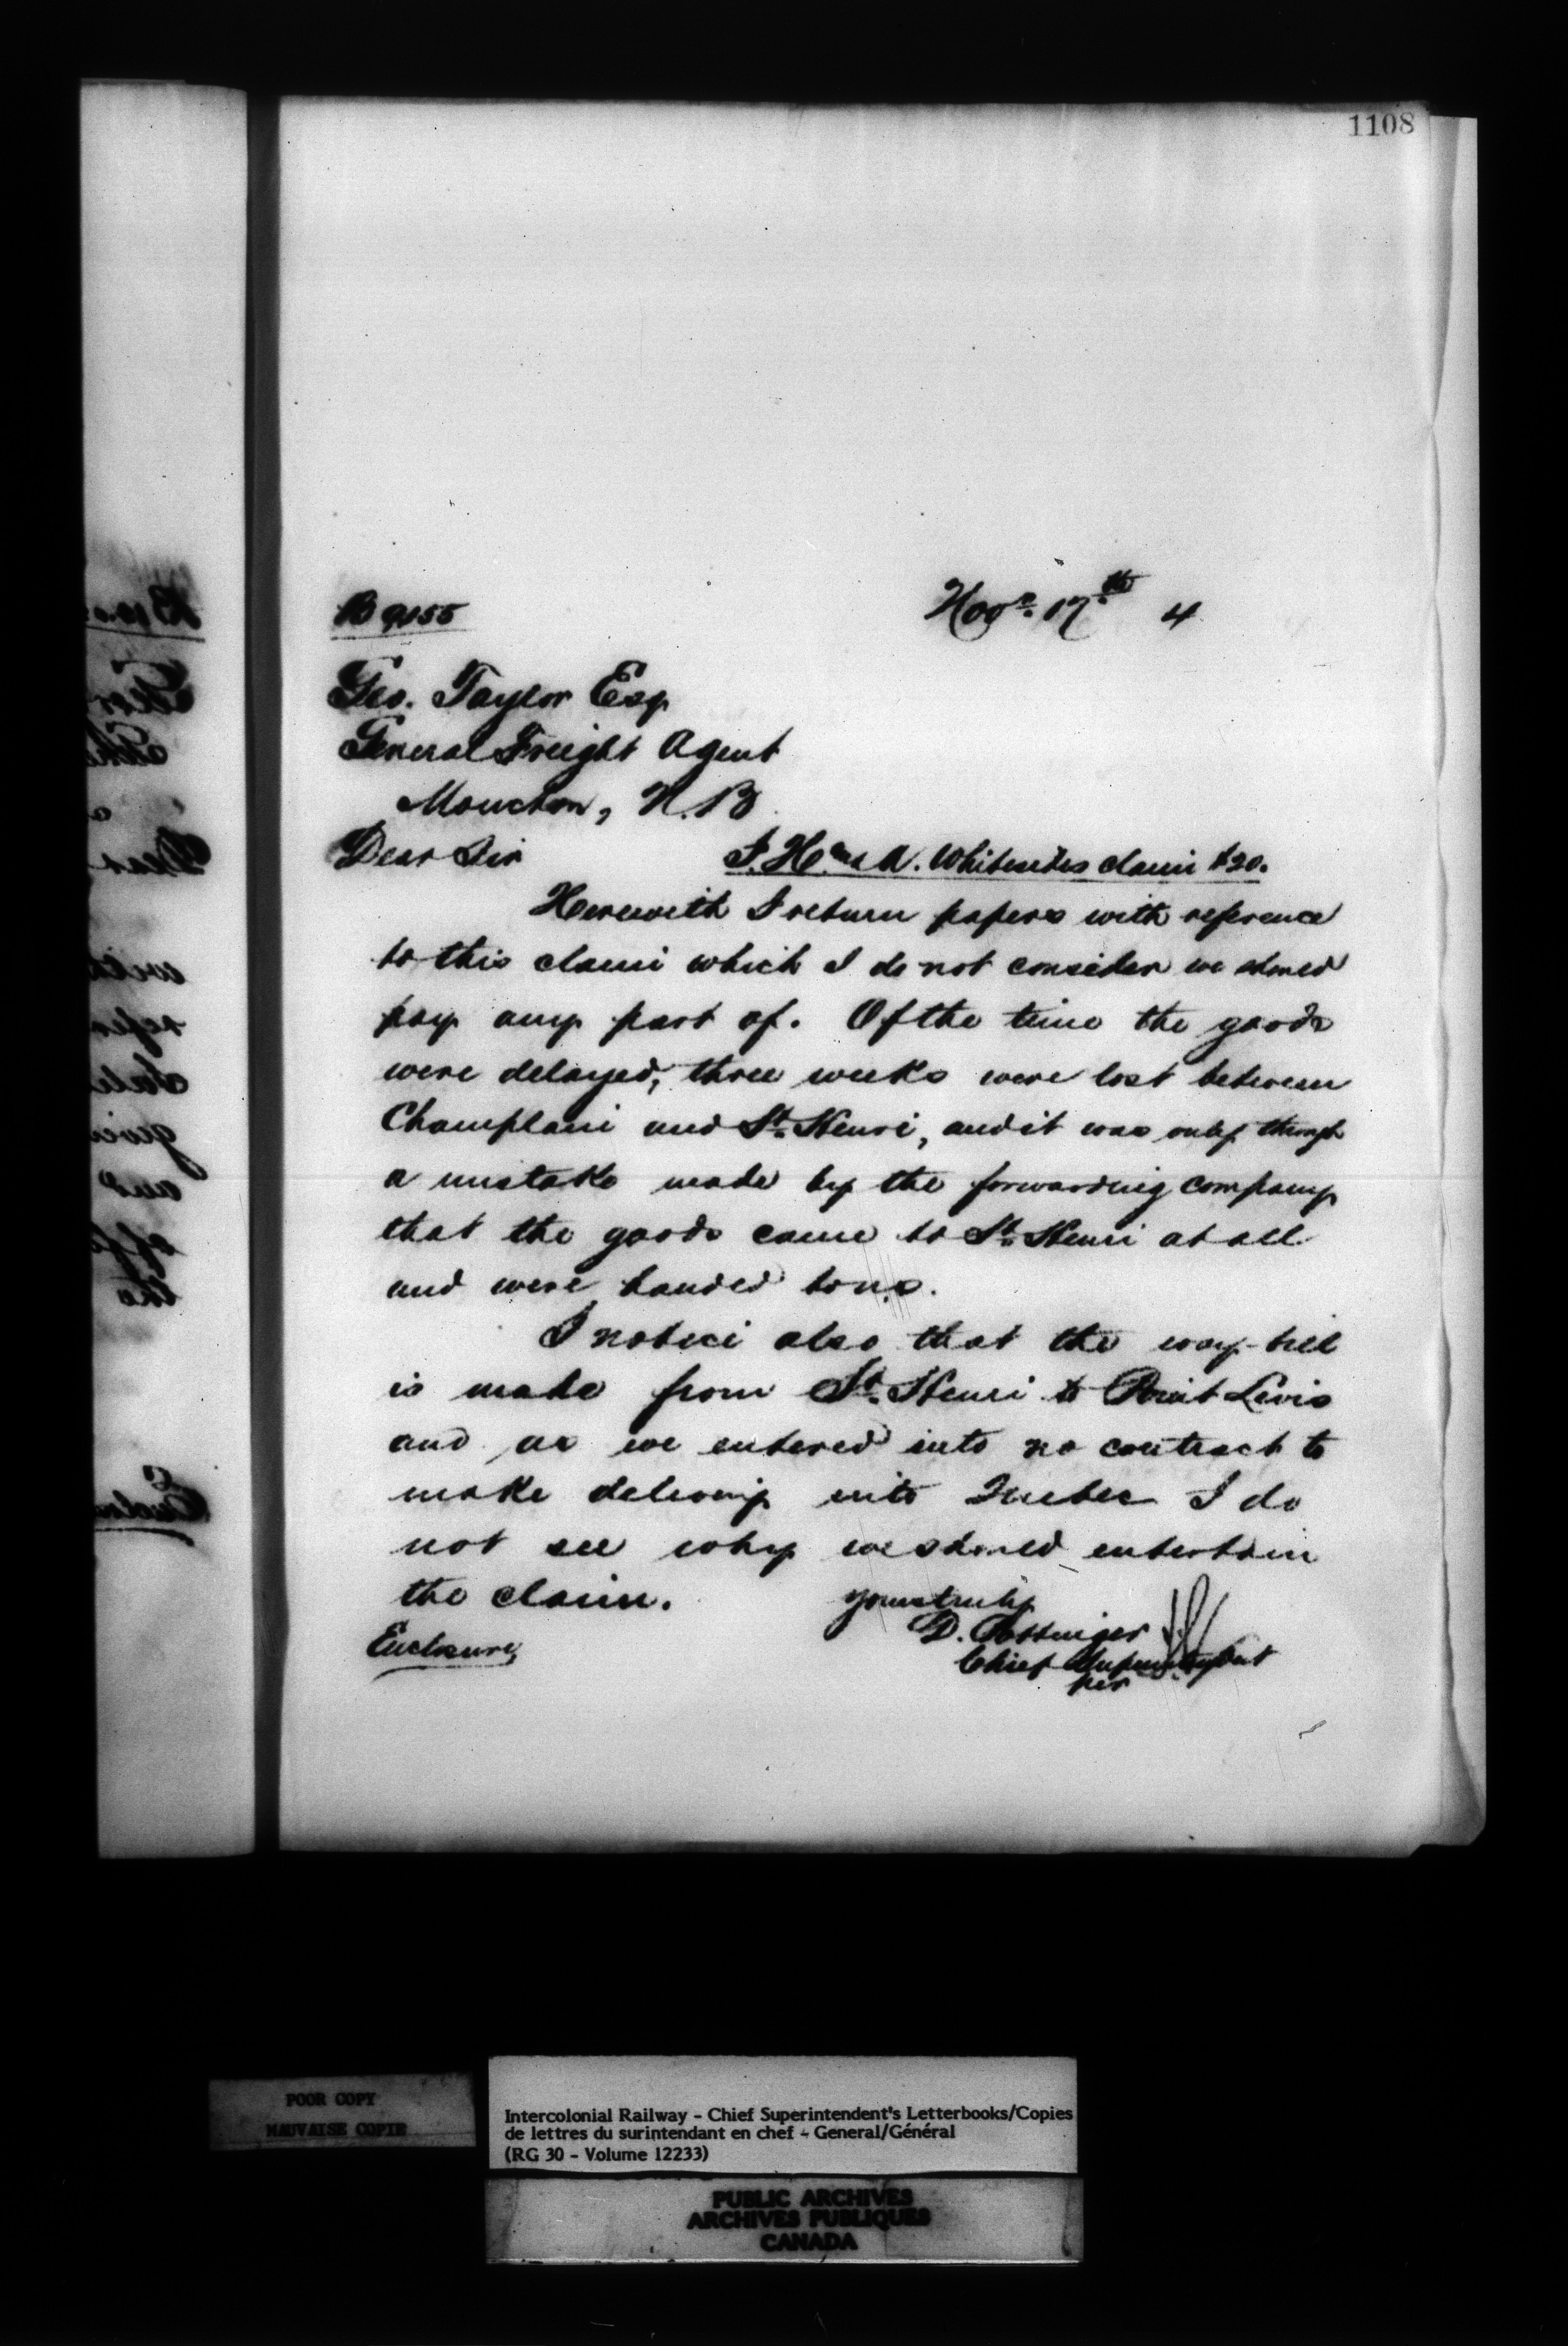 1108
B 9155
Novr. 17th 4
Geo. Taylor Esq
General Freight Agent
Moncton, N.B.
Dear Sir
Whitesides claim $20.
Herewith I return papers with reference
to this claim which I do not consider we should
pay any part of. Of the time the goods
were delayed, three weeks were lost between
Champlain and St. Henri, and it was only through
a mistake made by the forwarding company
that the goods came to St. Henri at all
and were handed to us.
I notice also that the way-bill
is made from St. Henri to Point Levis
and as we entered into no contract to
make delivery into Quebec I do
not see why we should entertain
the claim.
Yours truly
D. Pottinger
Chief Superintendent
per
Enclosure
POOR COPY
MAUVAISE COPIE
Intercolonial Railway - Chief Superintendent's Letterbooks/Copies
de lettres du surintendant en chef - General/Général
(RG 30 - Volume 12233)
PUBLIC ARCHIVES
ARCHIVES PUBLIQUES
CANADA